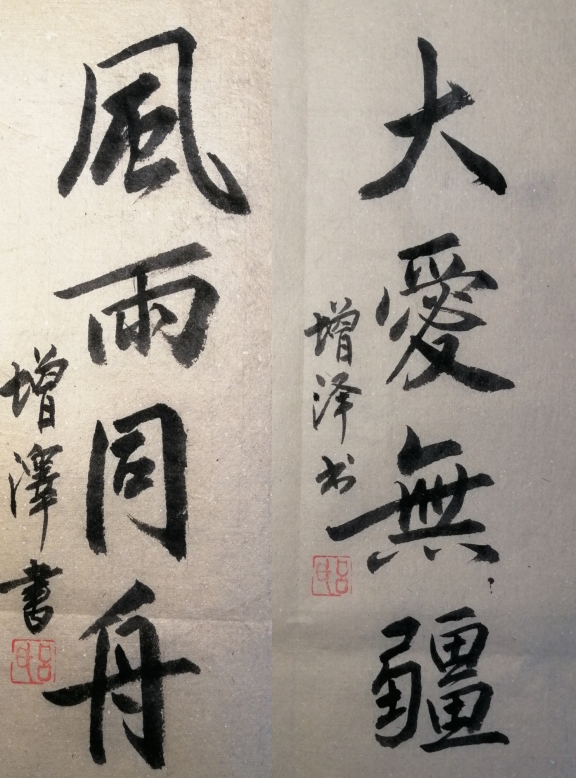 大愛無疆
增泽书
風雨同舟
增澤書